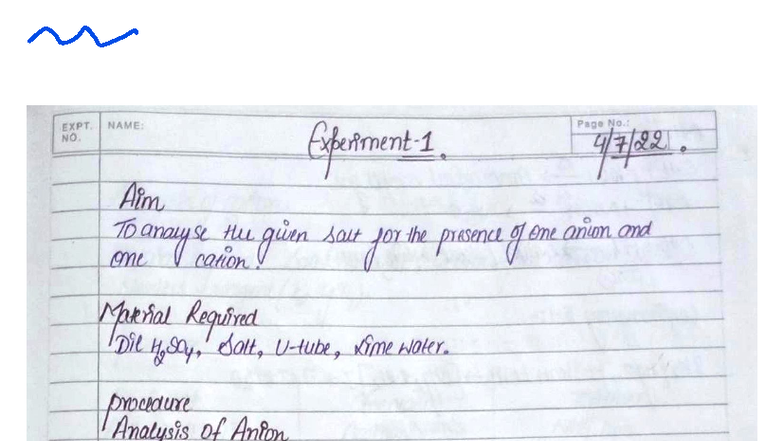 EXPT. NO.
NAME:
Experiment-1.
Page No.:
4/7/22.
Aim
To analyse the given salt for the presence of one anion and
one cation.
Material Required
Dil H₂SO₄, Salt, U-tube, Lime water.
Procedure
Analysis of Anion